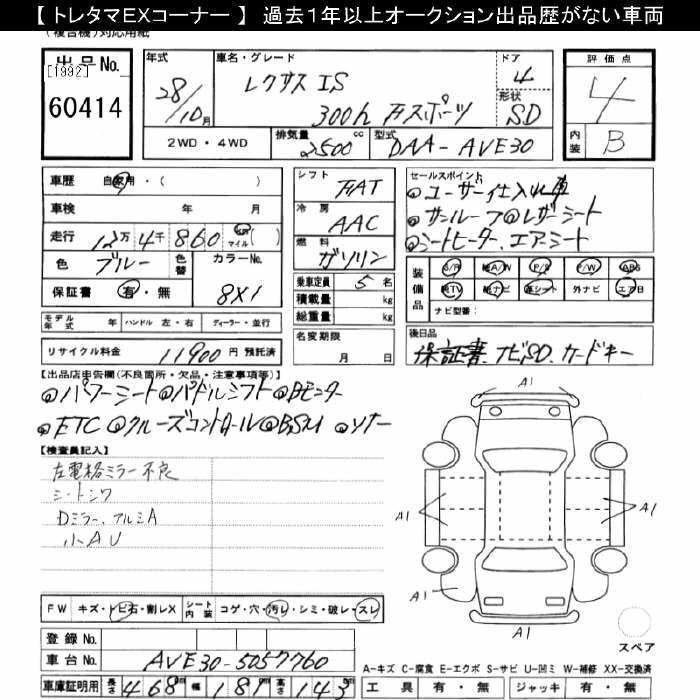 【トレタマEXコーナー】 過去1年以上オークション出品歴がない車両
(複合機)対応用紙
出品No.
[1992]
60414
年式
28/10月
車名・グレード
レクサス IS
300h Fスポーツ
ドア
4
形状
SD
2WD・4WD
排気量
2500 cc
型式
DAA-AVE30
評価点
4
内装
B
車歴 自家用・( )
車検 年 月
走行 12万4千860 km マイル( )
色 ブルー 色替 カラーNo. 8X1
保証書 有・無
モデル年式 年 ハンドル 左・右 ディーラー・並行
リサイクル料金 11900円 預託済
シフト
FAT
冷房
AAC
燃料
ガソリン
乗車定員 5名
積載量 kg
総重量 kg
名変期限
月 日
セールスポイント
◎ユーザー仕入れ車
◎サンルーフ◎レザーシート
◎シートヒーター、エアーシート
装備品
S/R 純A/W P/S P/W ABS
純TV 純ナビ 革シート 外ナビ エアB
ナビ型番:
後日品
保証書、ナビSD、カードキー
【出品店申告欄(不良箇所・欠品・注意事項等)】
◎パワーシート◎パドルシフト◎Bモニター
◎ETC ◎クルーズコントロール◎BSM ◎ソナー
【検査員記入】
左電格ミラー不良
シートシワ
Dミラー、アルミA
小AU
A1
A1
A1
A1
A1
スペア
FW キズ・トビ石・割レX シート内装 コゲ・穴・汚レ・シミ・破レ・スレ
登録No.
車台No. AVE30-5057760
車庫証明用 長さ 468cm 幅 181cm 高さ 143cm
A-キズ C-腐食 E-エクボ S-サビ U-凹ミ W-補修 XX-交換済
工具 有・無 ジャッキ 有・無